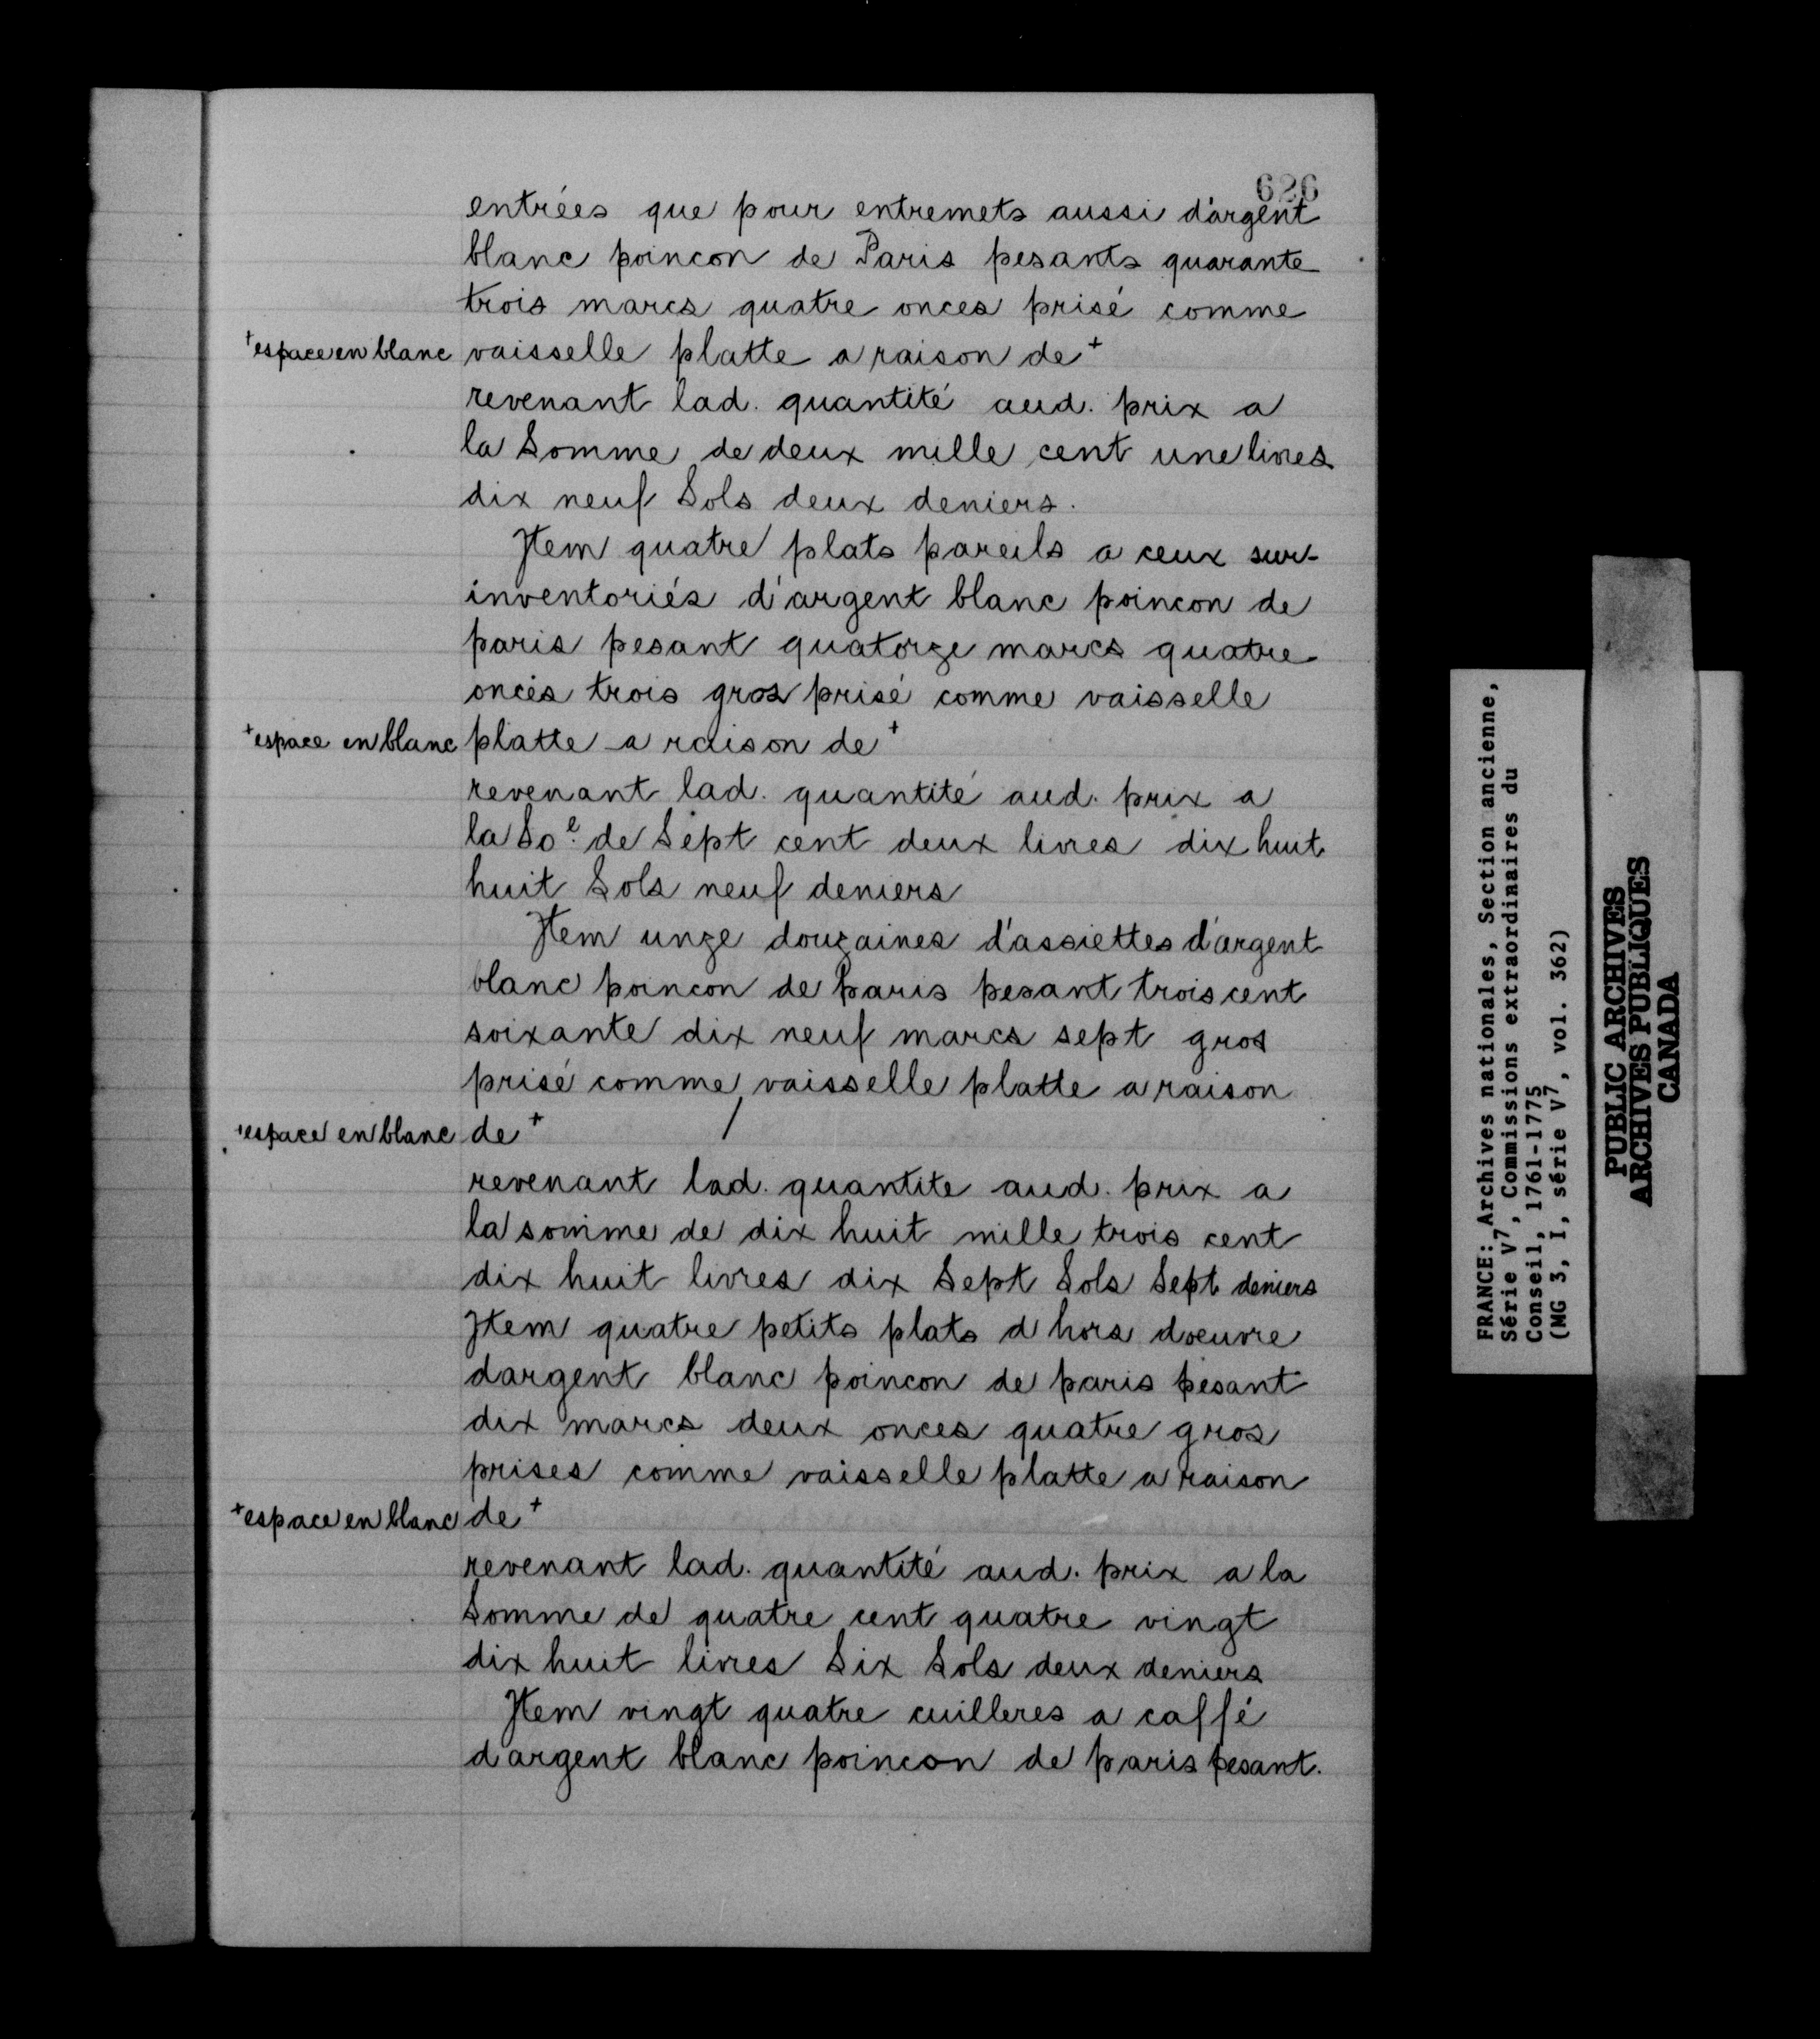 626
entrées que pour entremets aussi d'argent
blanc poincon de Paris pesants quarante
trois marcs quatre onces prisé comme
+espace en blanc vaisselle platte a raison de+
revenant lad. quantité aud. prix a
la Somme de deux mille cent une livres
dix neuf Sols deux deniers.
Item quatre plats pareils a ceux sur-
inventoriés d'argent blanc poincon de
paris pesant quatorze marcs quatre
onces trois gros prisé comme vaisselle
+espace en blanc platte a raison de+
revenant lad. quantité aud. prix a
la So.e de Sept cent deux livres dix huit
huit Sols neuf deniers
Item unze douzaines d'assiettes d'argent
blanc poincon de paris pesant trois cent
soixante dix neuf marcs sept gros
prisé comme vaisselle platte a raison
+espace en blanc de+
revenant lad. quantite aud. prix a
la somme de dix huit mille trois cent
dix huit livres dix Sept Sols Sept deniers
Item quatre petits plats d hors doeuvre
dargent blanc poincon de paris pesant
dix marcs deux onces quatre gros
prises comme vaisselle platte a raison
+espace en blanc de+
revenant lad. quantité aud. prix a la
Somme de quatre cent quatre vingt
dix huit livres Six Sols deux deniers
Item vingt quatre cuilleres a caffé
dargent blanc poincon de paris pesant.
FRANCE: Archives nationales, Section ancienne,
Série V7, Commissions extraordinaires du
Conseil, 1761-1775
(MG 3, I, série V7, vol. 362)
PUBLIC ARCHIVES
ARCHIVES PUBLIQUES
CANADA